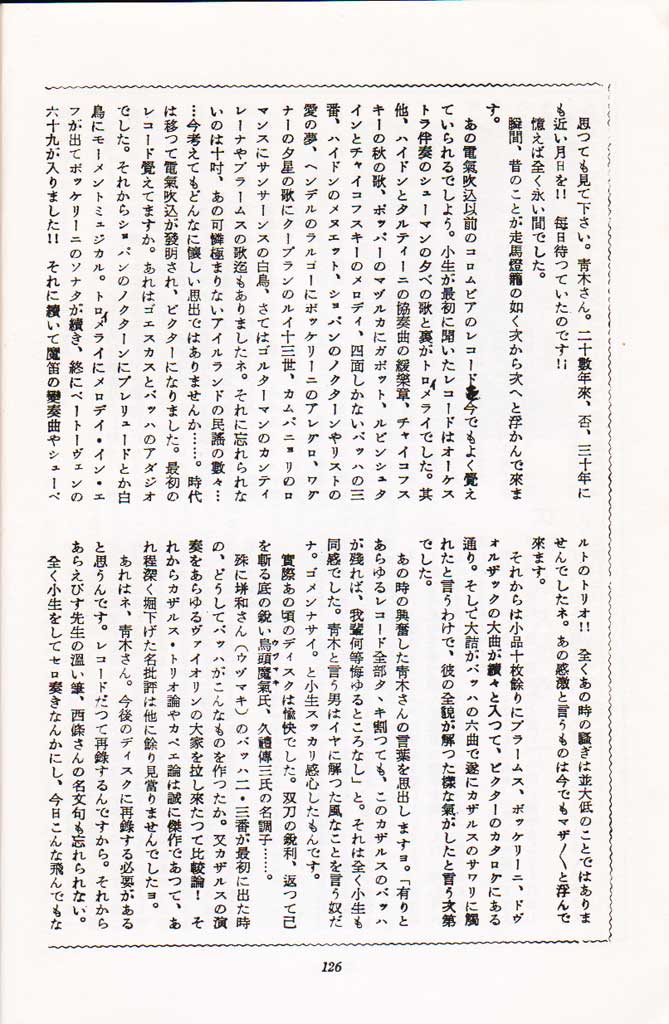 思つても見て下さい。青木さん。二十數年來、否、三十年に
も近い月日を!! 毎日待つていたのです!!
憶えば全く永い間でした。
瞬間、昔のことが走馬燈籠の如く次から次へと浮かんで來ま
す。
あの電氣吹込以前のコロムビアのレコード を今でもよく覺え
ていられるでしよう。小生が最初に聞いたレコードはオーケス
トラ伴奏のシューマンの夕べの歌と裏がトロイメライでした。其
他、ハイドンとタルティーニの協奏曲の緩樂章、チャイコフス
キーの秋の歌、ポッパーのマヅルカにガボット、ルビンシュタ
インとチャイコフスキーのメロディ、四面しかないバッハの三
番、ハイドンのメヌエット、ショパンのノクターンやリストの
愛の夢、ヘンデルのラルゴーにボッケリーニのアレグロ、ワグ
ナーの夕星の歌にクープランのルイ十三世、カムパニョリのロ
マンスにサンサーンスの白鳥、さてはゴルターマンのカンティ
レーナやブラームスの歌迄もありましたネ。それに忘れられな
いのは十吋、あの可憐極まりないアイルランドの民謡の數々…
…今考えてもどんなに懷しい思出ではありませんか……。時代
は移つて電氣吹込が發明され、ビクターになりました。最初の
レコード覺えてますか。あれはゴエスカスとバッハのアダジオ
でした。それからショパンのノクターンにプレリュードとか白
鳥にモーメントミュジカル。トロイメライにメロデイ・イン・エ
フが出てボッケリーニのソナタが續き、終にベートーヴェンの
六十九が入りました!! それに續いて魔笛の變奏曲やシューベ
ルトのトリオ!! 全くあの時の騒ぎは並大低のことではありま
せんでしたネ。あの感激と言うものは今でもマザ〳〵と浮んで
來ます。
それからは小品十枚餘りにブラームス、ボッケリーニ、ドヴ
ォルザックの大曲が續々と入つて、ビクターのカタログにある
通り。そして大詰がバッハの六曲で遂にカザルスのサワリに觸
れたと言うわけで、彼の全貌が解つた樣な氣がしたと言う次第
でした。
あの時の興奮した青木さんの言葉を思出しますヨ。「有りと
あらゆるレコード全部タヽキ割つても、このカザルスのバッハ
が殘れば、我輩何等悔ゆるところなし」と。それは全く小生も
同感でした。青木と言う男はイヤに解つた風なことを言う奴だ
ナ。ゴメンナサイ。と小生スッカリ感心したもんです。
實際あの頃のディスクは愉快でした。双刀の銳利、返つて己
を斬る底の銳い烏頭魔氣氏、久禮傳三氏の名調子……。
ウヅマキ
殊に垪和さん（ウヅマキ）のバッハ二・三番が最初に出た時
の、どうしてバッハがこんなものを作つたか、又カザルスの演
奏をあらゆるヴァイオリンの大家を拉し來たつて比較論! そ
れからカザルス・トリオ論やカペエ論は誠に傑作であつて、あ
れ程深く堀下げた名批評は他に餘り見當りませんでしたヨ。
あれはネ、青木さん。今後のディスクに再錄する必要がある
と思うんです。レコードだつて再錄するんですから。それから
あらえびす先生の溫い筆、西條さんの名文句も忘れられない。
全く小生をしてセロ奏きなんかにし、今日こんな飛んでもな
126